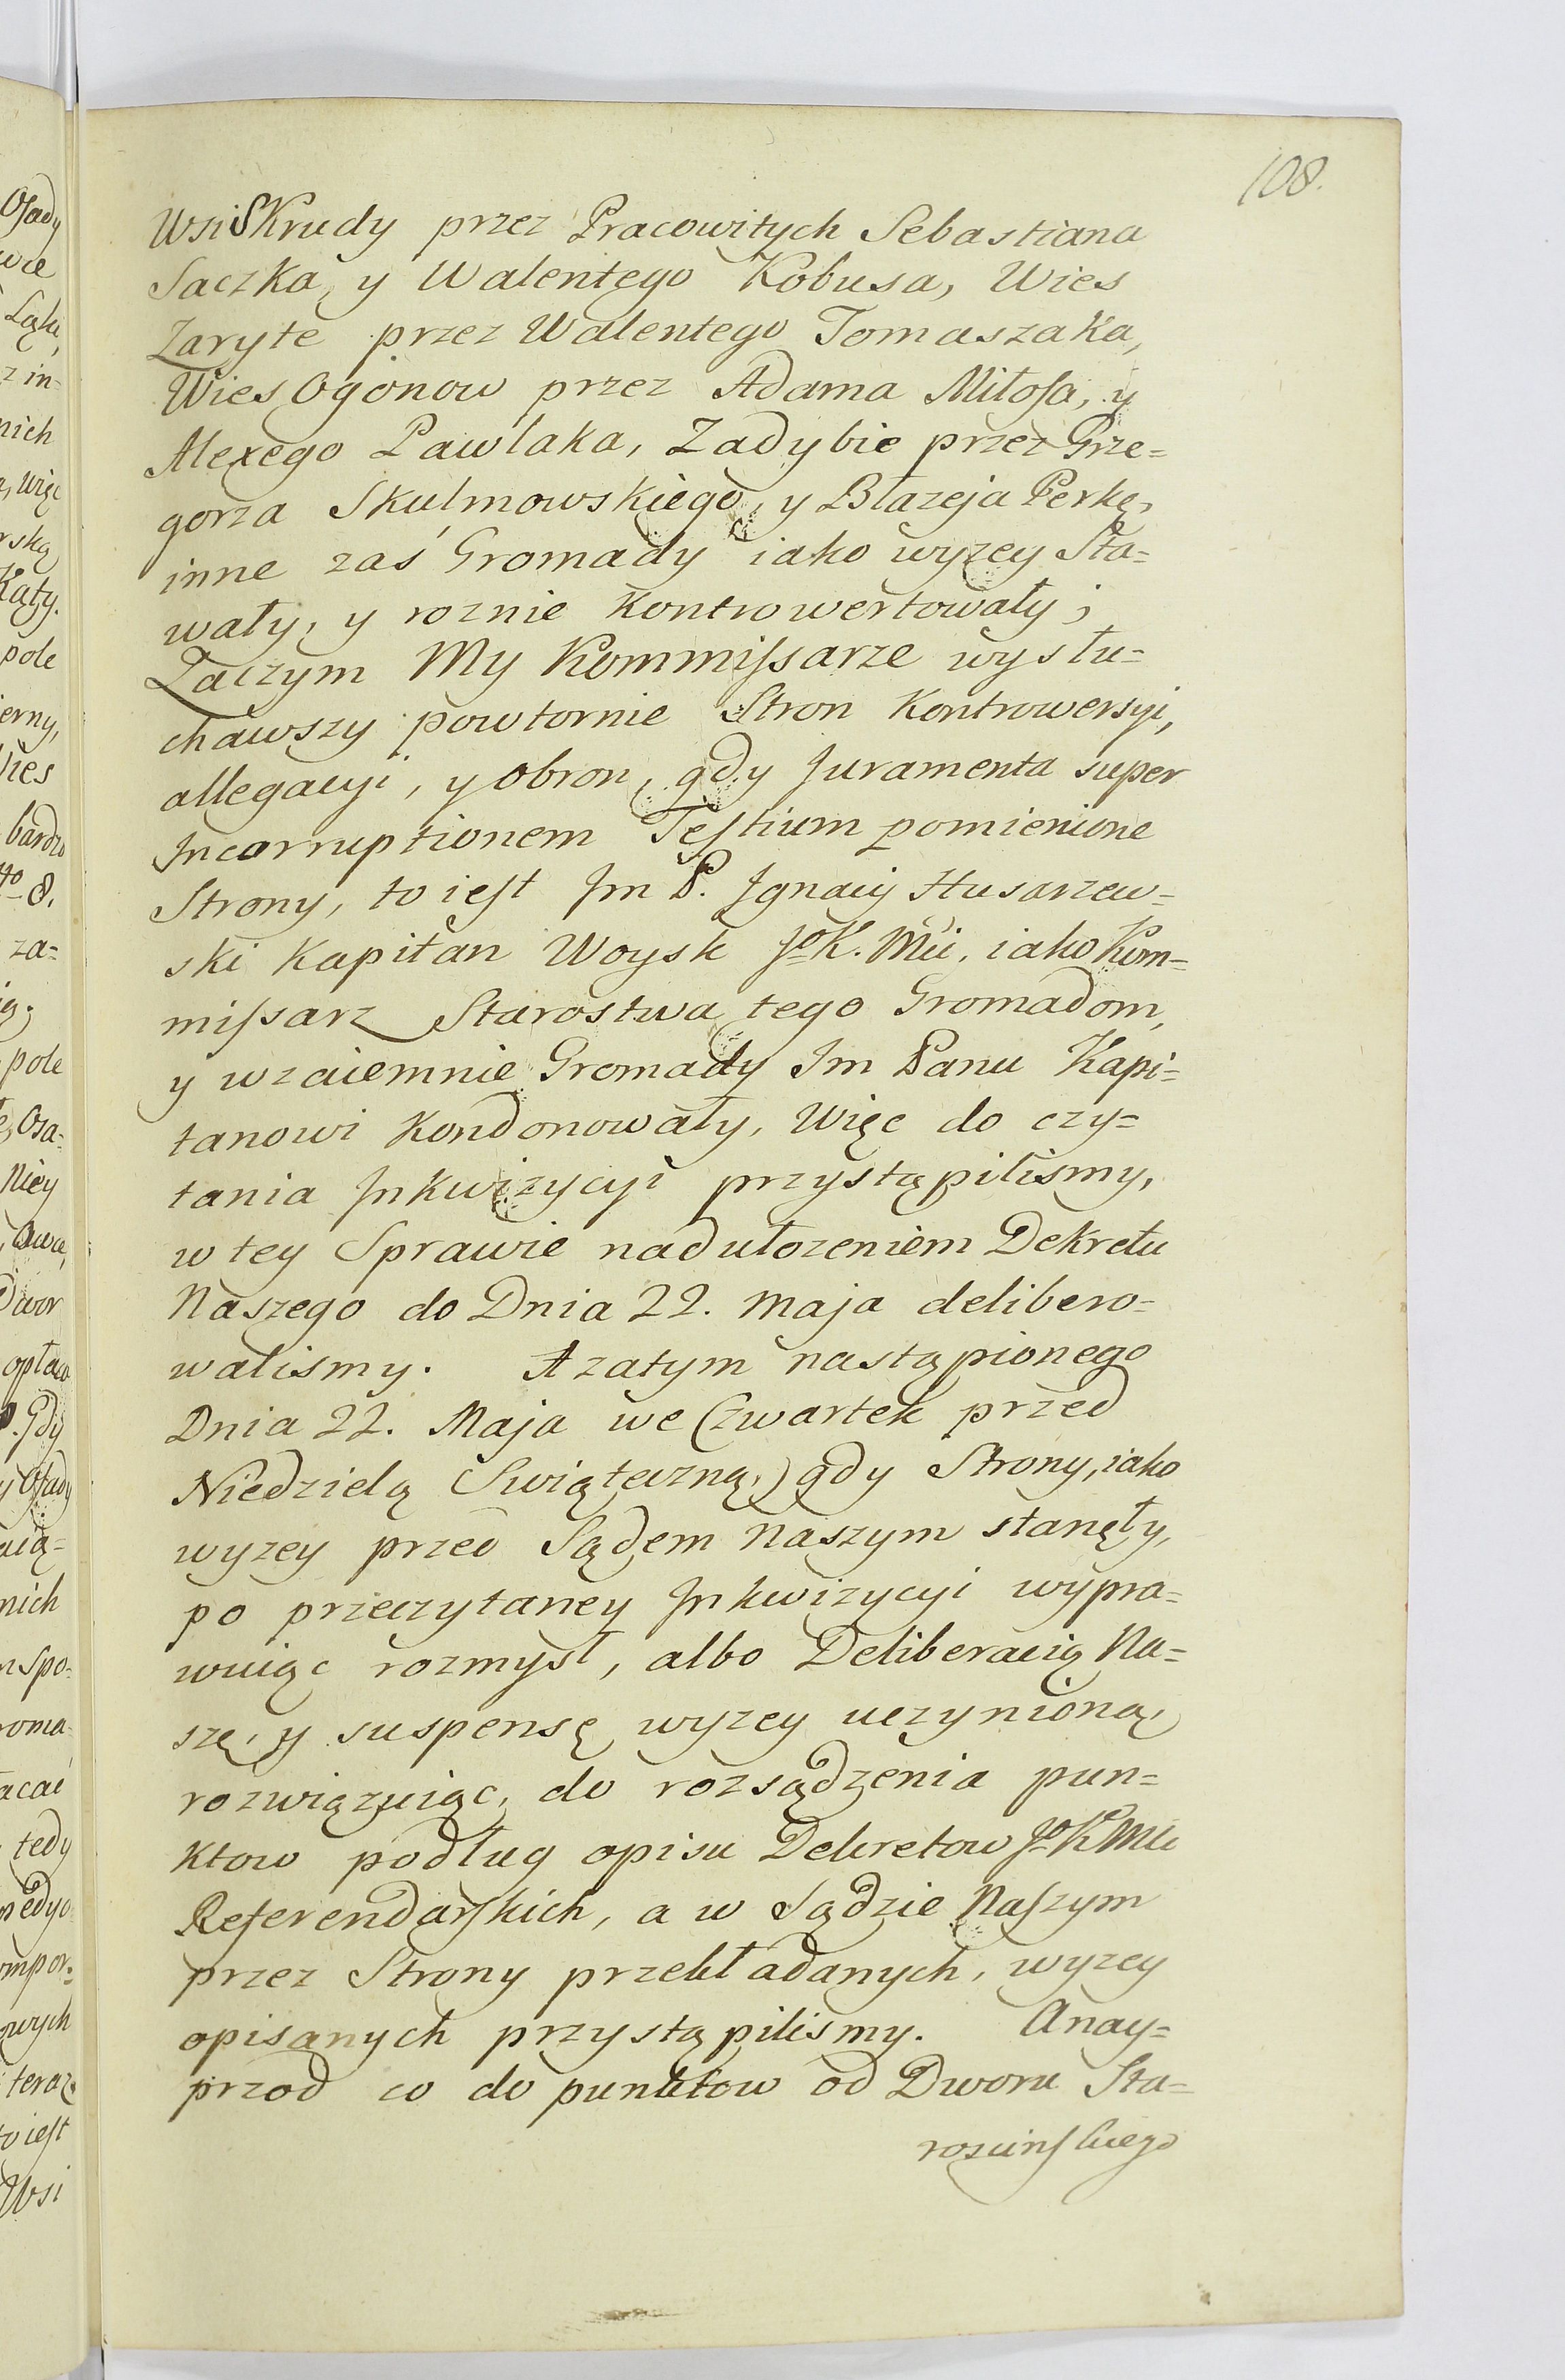 108.
Wsi Skrudy przez Pracowitych Sebastiana
Saczka, y Walentego Kobusa, Wies
Zaryte przez Walentego Tomaszaka,
Wies Ogonow przez Adama Miłoſa, y
Alexego Pawlaka, Zadybie przez Grze=
gorza Skulmowskiego, y Błazeja Perkę,
inne zaś Gromady iako wyzey Sta=
wały, y roznie kontrowertowały;
Zaczym My Kommiſsarze wysłu=
chawszy powtornie Stron kontrowersyi,
allegacyi, y obron, gdy Juramenta super
Incorruptionem Teſtium pomienione
Strony, to ieſt Jm P. Jgnacy Husarzew=
ski Kapitan Woysk JoK. Mci, iako Kom=
miſsarz Starostwa tego Gromadom,
y wzaiemnie Gromady Jm Panu Kapi=
tanowi kondonowały, Więc do czy=
tania Jnkwizycyi przystąpilismy,
w tey Sprawie nad ułozeniem Dekretu
Naszego do Dnia 22. Maja delibero=
walismy. A zatym nastąpionego
Dnia 22. Maja we Czwartek przed
Niedzielą Swiąteczną, gdy Strony, iako
wyzey przed Sądem Naszym stanęły,
po przeczytaney Jnkwizycyi wypra=
wuiąc rozmysł, albo Deliberacią Na=
szę, y suspensę wyzey uczynioną,
rozwięzuiąc, do rozsądzenia pun=
ktow podług opisu Dekretow JoKMci
Referendarſkich, a w Sądzie Naſzym
przez Strony przekładanych, wyzey
opisanych przystąpilismy. A nay=
przod co do punktow od Dworu Sta=
roscinſkiego
Oſady
Łąki,
z in=
nich
pole
erny,
bardzo
8.
za=
pole
Osa=
Niey
Dwor
Gdy
y Oſady
nich
tedy
teraz
to ieſt
Wsi